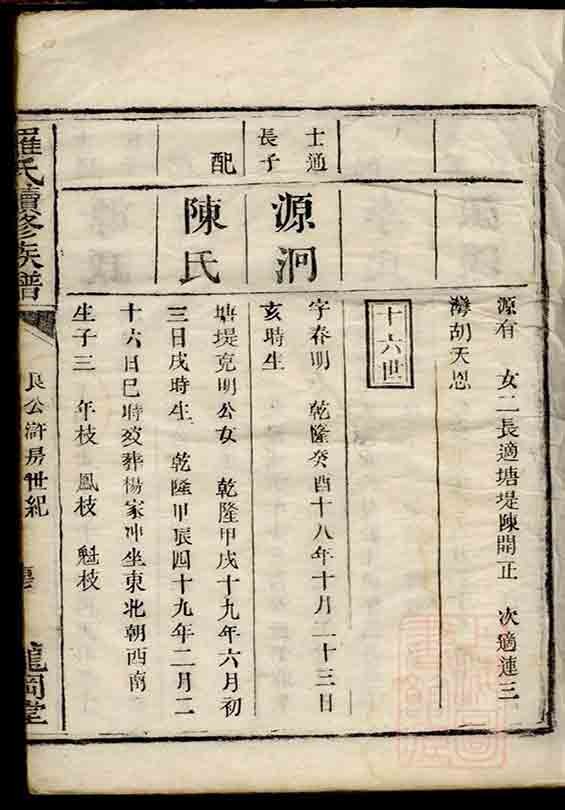 源有 女二長適塘堤陳開正 次適連三
灣胡天恩
十六世
士通
長子
源泂
字春明 乾隆癸酉十八年十月二十三日
亥時生
配
陳氏
塘堤克明公女 乾隆甲戌十九年六月初
三日戌時生 乾隆甲辰四十九年二月二
十六日巳時歿葬楊家冲坐東北朝西南
生子三 年枝 鳳枝 魁枝
羅氏續修族譜
良公滸房世紀
龍岡堂